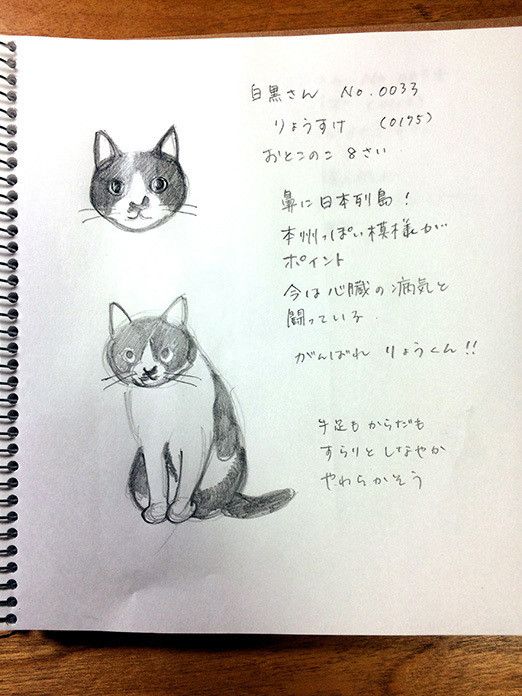 白黒さん No.0033
りょうすけ (0175)
おとこのこ 8さい.
鼻に日本列島!
本州っぽい模様が
ポイント
今は心臓の病気と
闘っている.
がんばれ りょうくん!!
手足もからだも
すらりとしなやか
やわらかそう